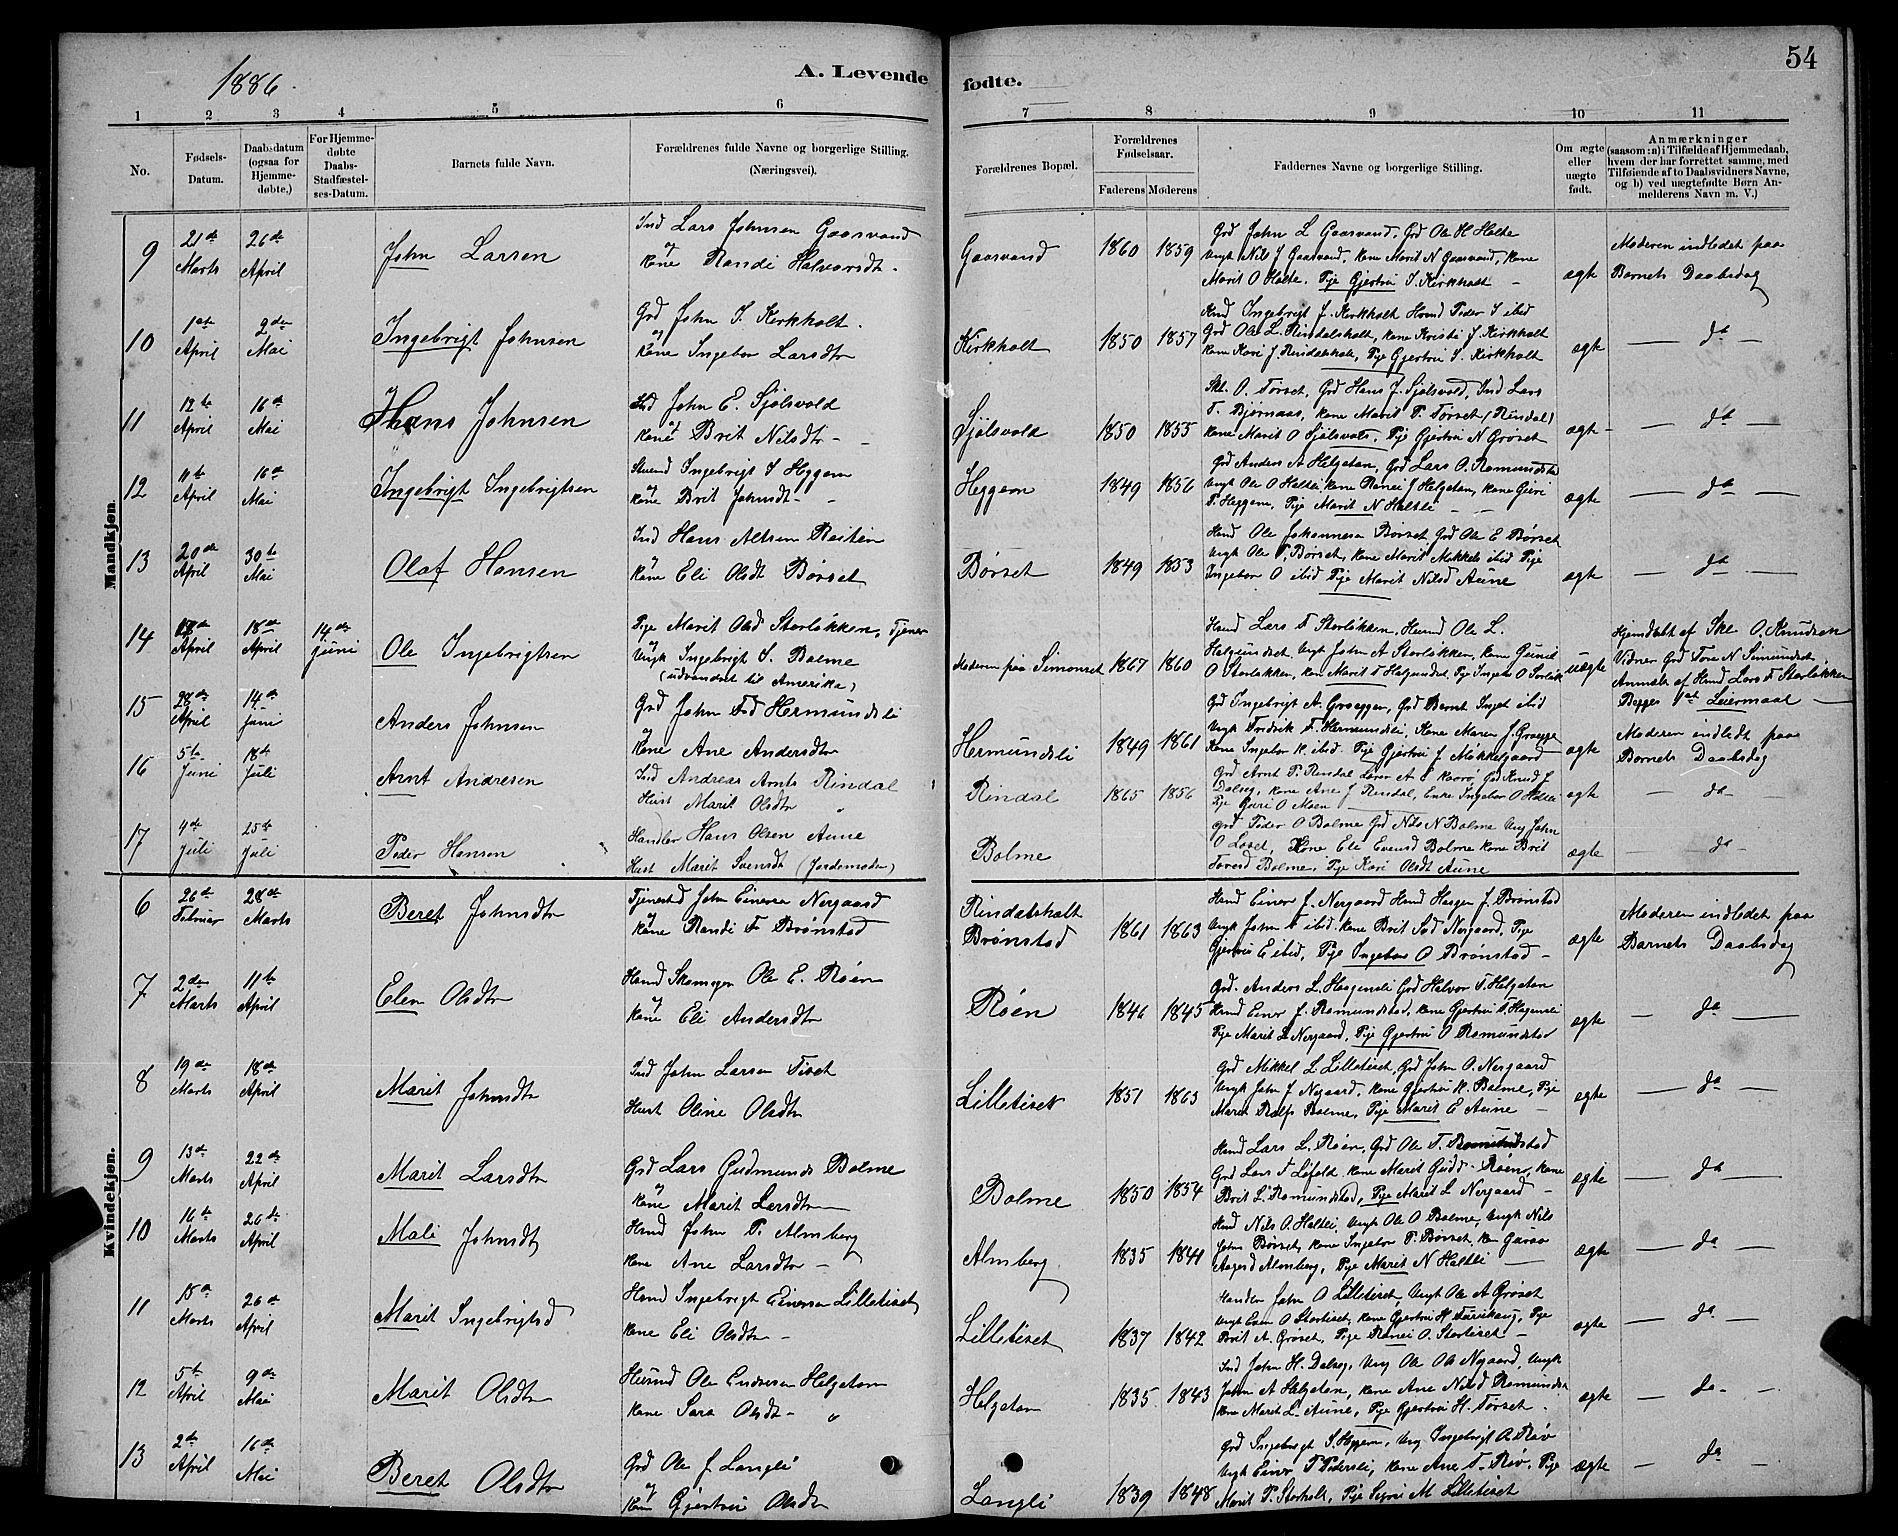 1886.
A. Levende fødte.
54
1 2 3 4 5 6 7 8 9 10 11
No.
Fødsels-Datum.
Daabsdatum (ogsaa for Hjemme-døbte.)
For Hjemme-døbte Daabs-Stadfæstel-ses-Datum.
Barnets fulde Navn.
Forældrenes fulde Navne og borgerlige Stilling.
(Næringsvei).
Forældrenes Bopæl.
Forældrenes Fødselsaar.
Faderens Moderens
Faddernes Navne og borgerlige Stilling.
Om ægte eller uægte født.
Anmærkninger
(saasom: a) i Tilfælde af Hjemmedaab,
hvem der har forrettet samme, med
Tilføiende af to Daabsvidners Navne,
og b) ved uægtefødte Børn An-
melderens Navn m. V.)
Mandkjøn.
9 21de Marts 26de April John Larsen
Ind Lars Johnsen Gaasvand
og Kone Randi Halvorsdtr
Gaasvand 1860 1859
Grd John L Gaasvand, Grd Ole H Halte
Ungk Nils J Gaasvand, Kone Marit N Gaasvand, Kone
Marit O Halte, Pige Gjertru I. Kirkholt
ægte
Moderen indledet paa
Barnets Daabsdag
10 1ste April 2den Mai Ingebrigt Johnsen
Grd John I. Kirkholt
og Kone Ingebor Larsdtr
Kirkholt 1850 1857
Grd Ole L. Rindalsholt, Kone Kristi J Kirkholt
Kone Kari J. Rindalsholt, Pige Gjertru I. Kirkholt
ægte da
11 12te April 16de Mai Hans Johnsen
Ind John E. Sjølsvold
og Kone Brit Nilsdtr
Sjølsvold 1850 1855
Skl. O. Tørset, Grd Hans J. Sjølsvold, Ind Lars
T. Bjørnaas, Kone Marit P. Tørset (Rindal)
Kone Marit O Sjølsvold, Pige Gjertru N Grøset
ægte da
12 11te April 16de Mai Ingebrigt Ingebrigtsen
Ingebrigt I Heggem
og Kone Brit Johnsdtr
Heggem 1849 1856
Grd Anders A Helgetun, Grd Lars O. Romundstad
Ungk Ole O Haltli Kone Randi J Helgetun, Kone Guri
P. Heggem, Pige Marit N Haltli
ægte da
13 20de April 30te Mai Olaf Hansen
Ind Hans Røiten
og Kone Eli Olsdt Børset
Børset 1849 1853
Hmd Ole Johannesen Børset Grd Ole E Børset
Ungk Ole T. Børset, Kone Marit Mikkels ibid Pige
Ingebor O ibid Pige Marit Nilsd Aune
ægte da
14 April 18de April 14de Juni Ole Ingebrigtsen
Pige Marit Olsd Storløkken, Tjener
og Ungk Ingebrigt I. Bolme
(udvandret til Amerika)
Moderen paa Simonset 1867 1860
Hmd Lars T Storløkken, Husmd Ole L.
Halgundset, Ungk John A Storløkken, Kone Gunil
O Storløkken, Kone Marit T Halgundset, Pige Ingebor O Storløk
uægte
Hjemdøbt af Skl O. Knudsen
Vidner Grd Tore N Simundset
Anmeldt af Hmd Lars T Storløkken
Begges 1ste Leiermaal
15 28de April 14de Juni Anders Johnsen
Grd John Hermundsli
og Kone Ane Andersdtr
Hermundsli 1849 1861
Grd Ingebrigt A. Groeggen, Grd Bernt Ingebr ibid
Ungk Fredrik F. Hermundsli, Kone Maren J. Groegge
Kone Ingebor K. ibid, Pige Gjertru J Møkkelgaard
ægte
Moderen indledt paa
Barnets Daabsdag
16 5te Juni 18de Juli Arnt Andresen
Ind Andreas Arnts Rindal
Hust Marit Olsdtr
Rindal 1865 1856
Grd Arnt P. Rindal Lærer A E Kaarø Grd Knud J
Dalseg, Kone Ane J Rindal, Enke Ingebor O Haltli
Pige Guri O Moen
ægte da
17 4de Juli 25de Juli Peder Hansen
Handler Hans Olsen Aune
Hust Marit Svensdt (Jordemoder)
Bolme
Grd Peder O Bolme Grd Nils N Bolme Ung John
O Løset, Kone Eli Evensd Bolme Kone Brit
Toresd Bolme, Pige Kari Olsdt Aune
ægte da
Kvindekjøn.
6 26de Februar 28de Marts Beret Johnsdtr
Tjenestd John Einersen Nergaard
og Kone Randi F Brønstad
Rindalsholt
Brønstad 1861 1863
Hmd Einer J. Nergaard Hmd Hagen J. Brønstad
Ungk John F ibid. Kone Brit Nergaard, Pige
Gjertru E ibid, Pige Ingebor O Brønstad
ægte
Moderen indledet paa
Barnets Daabsdag
7 2den Marts 11te April Elen Olsdtr
Hmd Skomager Ole E. Røen
og Kone Eli Andersdtr
Røen 1846 1845
Grd. Anders L. Hagensli Grd Halvor T. Helgetun
Hmd Einer J. Romundstad, Kone Gjertru T. Hagensli
Pige Marit L Nergaard, Pige Gjertru O Romundstad
ægte da
8 19de Marts 18de April Marit Johnsdtr
Ind John Larsen Tiset
Hust Oline Olsdtr
Lilletiset 1851 1863
Grd Mikkel L Lilletiset, Grd John O. Nergaard
Ungk John J Nygaard, Kone Gjertru K. Bolme, Pige
Marit Rolfs Bolme, Pige Marit E Aune
ægte da
9 13de Marts 22de April Marit Larsdtr
Grd Lars Gudmunds Bolme
og Kone Marit Larsdtr
Bolme 1850 1854
Hmd Lars L. Røen, Grd Ole T. Romundstad
Grd Lars T Løfald Kone Marit Gudd. Røen, Kone
Brit L. Romundstad, Pige Marit L Nergaard
ægte da
10 16de Marts 26de April Mali Johnsdtr
Hmd John P. Almberg
Kone Ane Larsdtr
Almberg 1835 1841
Hmd Nils O. Haltli, Ungk Ole O Bolme, Ungk Nils
Johns Børset, Kone Ingebor P. Børset, Kone
Aagesd Almberg, Pige Marit N Haltli
ægte da
11 15de Marts 26de April Marit Ingebrigtsd
Hmd Ingebrigt Einersen Lilletiset
Kone Eli Olsdtr
Lilletiset 1837 1842
Handler John O Lilletiset, Ungk Ole A Grøset
Ungk Even O Stortiset, Kone Gjertru H Furuhaug, Pige
Brit A. Grøset, Pige Randi O. Stortiset
ægte da
12 5te April 9de Mai Marit Olsdtr
Husmd Ole Endresen Helgetun
Kone Sara Olsdtr
Helgetun 1835 1843
Ind John H. Dalseg, Ung Ole Ols Nygaard, Ungk
John A Helgetun, Kone Ane Nilsd Romundsta
Kone Marit L. Aune, Pige Gjertru H. Tørset
ægte da
13 2de April 16de Mai Beret Olsdtr
Grd Ole J Langli
og Kone Gjertru Olsdtr
Langli 1839 1848
Grd Ingebrigt I. Heggem, Ung Ingebrigt A. Røv
Ungk Einer T Pedersli, Kone Ane T. Røv, Pige
Marit P. Storholt, Pige Sigri M Lilletiset
ægte da